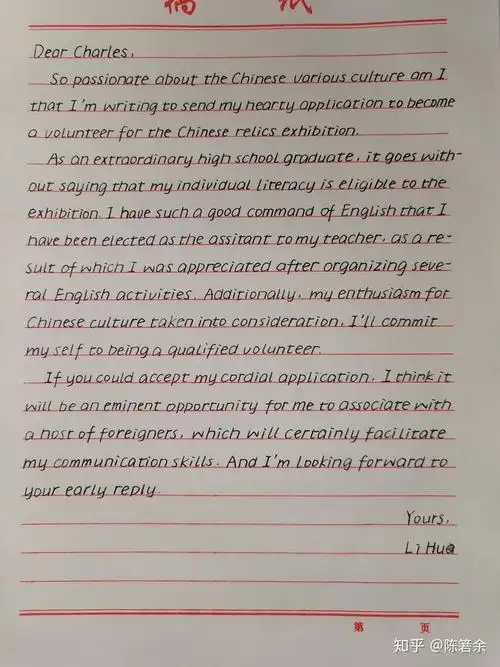 稿 纸
Dear Charles,
So passionate about the Chinese various culture am I
that I'm writing to send my hearty application to become
a volunteer for the Chinese relics exhibition.
As an extraordinary high school graduate, it goes with-
out saying that my individual literacy is eligible to the
exhibition. I have such a good command of English that I
have been elected as the assitant to my teacher, as a re-
sult of which I was appreciated after organizing seve-
ral English activities. Additionally, my enthusiasm for
Chinese culture taken into consideration, I'll commit
my self to being a qualified volunteer.
If you could accept my cordial application, I think it
will be an eminent opportunity for me to associate with
a host of foreigners, which will certainly facilitate
my communication skills. And I'm looking forward to
your early reply.
Yours,
Li Hua
第 页
知乎 @陈箬余